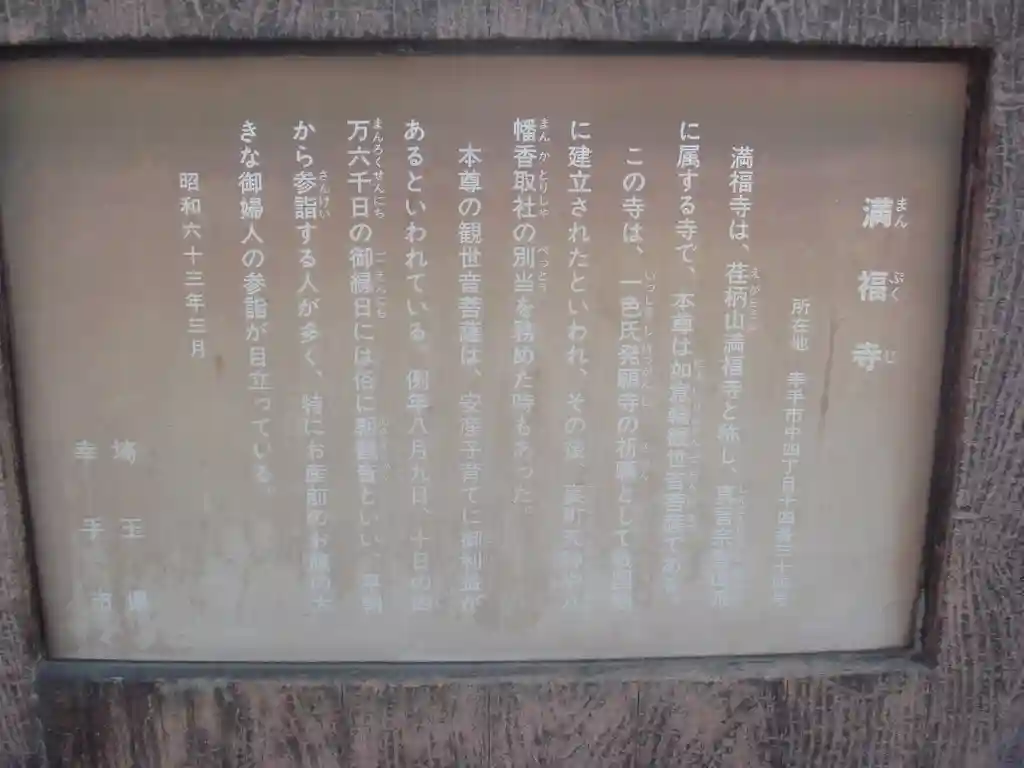 満福寺
まんぷくじ
所在地 幸手市中四丁目十四番三十
満福寺は、荏柄山満福寺と称し、真言宗
に属する寺で、本尊は如意輪観世音菩薩である。
この寺は、一色氏発願寺の祈願として戦国期
に建立されたといわれ、その後、
幡香取社の別当を務めた時もあった。
まん かとりしゃ べっとう
本尊の観世音菩薩は、安産子育てに御利益が
あるといわれている。例年八月九日、十日の四
万六千日の御縁日には俗に朝観音といい、早朝
まんろくせんにち ごえんにち
から参詣する人が多く、特にお産前のお腹の大
さんけい
きな御婦人の参詣が目立っている。
昭和六十三年三月
埼玉県
幸手市